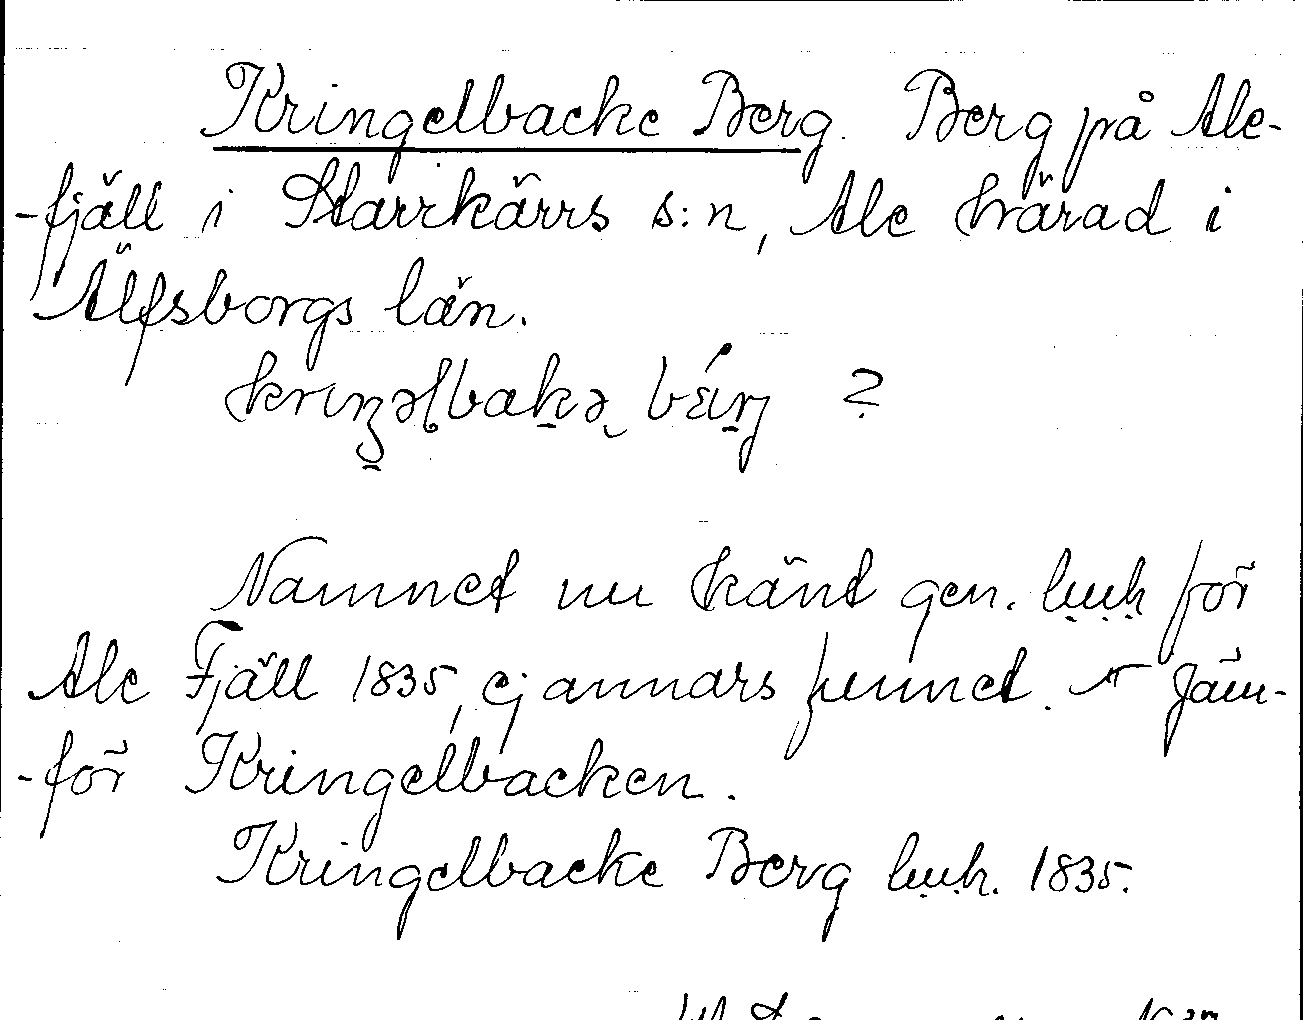 Kringelbacke Berg. Berg på Ale-
-fjäll i Starrkärrs s:n, Ale härad i
Älfsborgs län.
?
Namnet nu känt gen. l.u.h. för
Ale Fjäll 1835, ej annars funnet. Jäm-
-för Kringelbacken.
Kringelbacke Berg l.u.h. 1835.